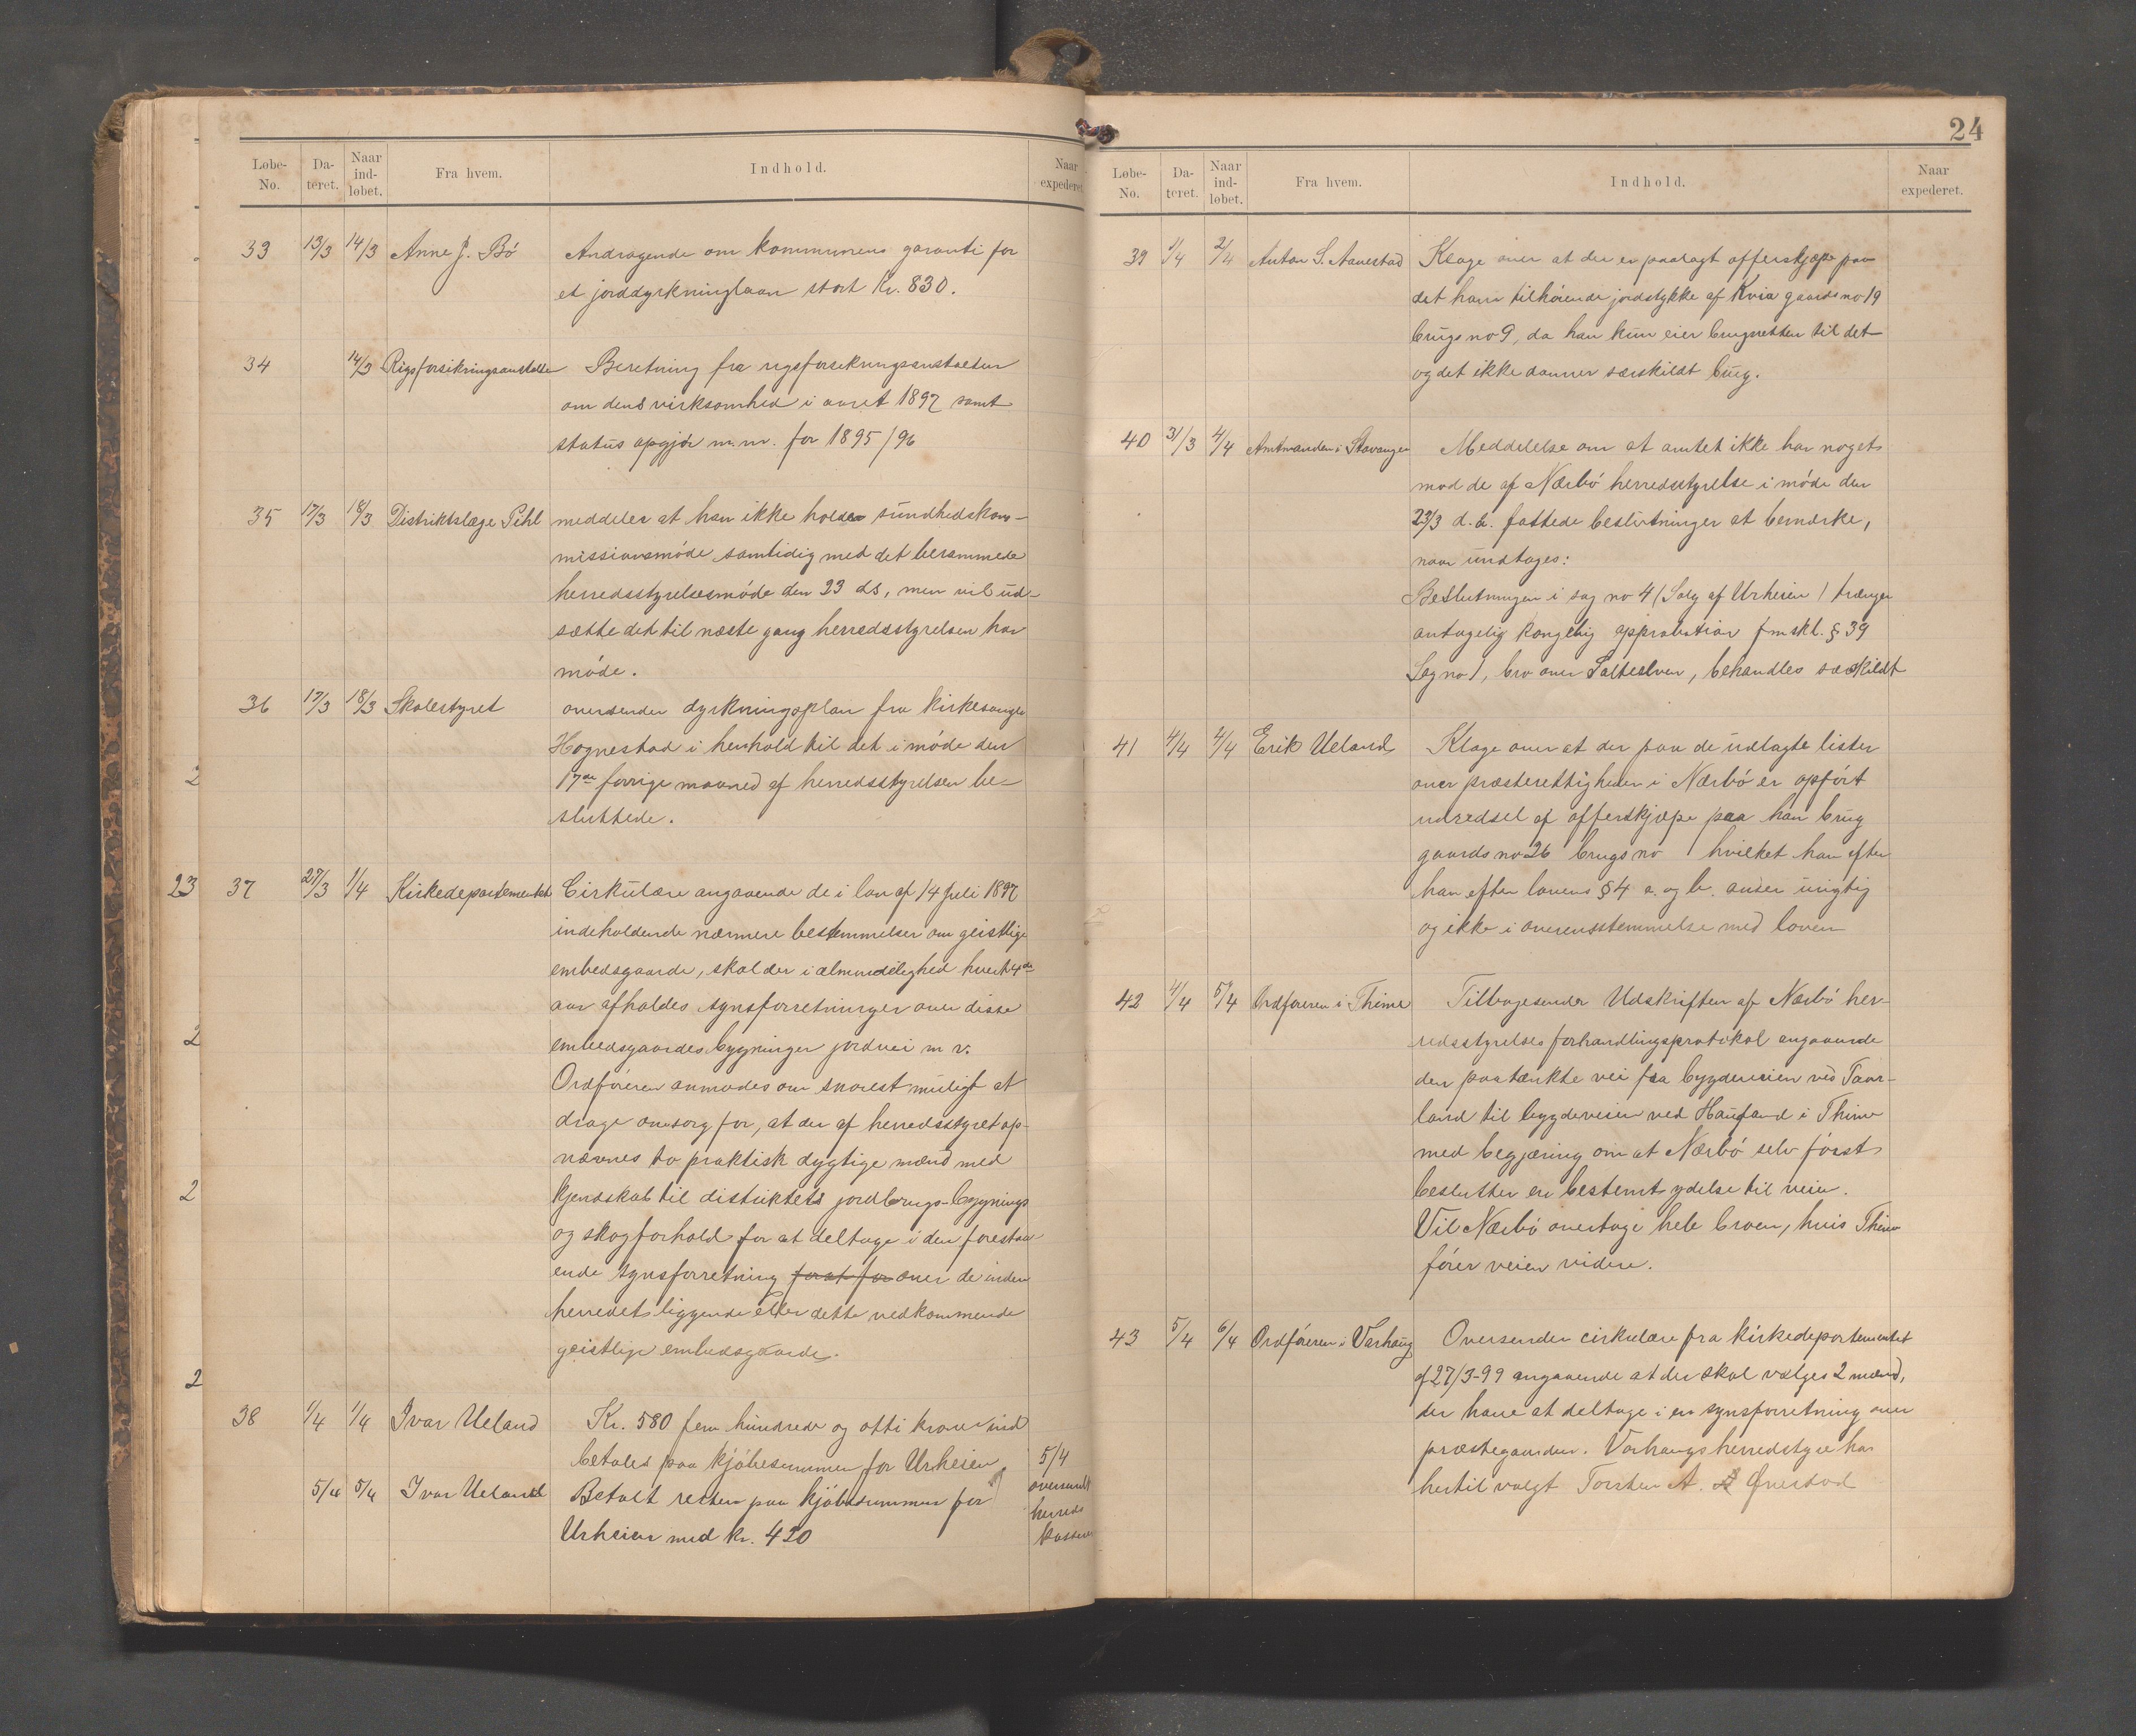 Løbe-No. Da-teret. Naar ind-løbet. Fra hvem. Indhold. Naar expederet.
33 13/3 14/3 Anne J. Bö Andragende om kommunens garanti for
et jorddyrkninglaan stort Kr. 830.
34 14/3 Rigsforsikringsanstalten Beretning fra rigsforsikringsanstalten
om dens virksomhed i aaret 1897 samt
status opgjör m.m. for 1895/96
35 17/3 18/3 Distriktslæge Pihl meddeler at han ikke holder sundhedskom-
missionsmöde samtidig med det berammede
herredsstyrelsesmöde den 23 ds, men vil ud-
sætte det til næste gang herredsstyrelsen har
möde.
36 17/3 18/3 Skolestyret oversender dyrkningsplan fra kirkesanger
Hognestad i henhold til det i möde den
17de forrige maaned af herredsstyrelsen be-
sluttede.
23 37 27/3 1/4 Kirkedepartementet Cirkulære angaaende de i lov af 14 juli 1897
indeholdende nærmere bestemmelser om geistlige
embedsgaarde, skal der i almindelighed hvert 4de
aar afholdes synsforretninger over disse
embedsgaardes bygninger jordvei m v.
Ordföreren anmodes om snarest muligt at
drage omsorg for, at der af herredsstyret op-
nævnes to praktisk dygtige mænd med
kjendskab til distriktets jordbrugs- bygnings
og skogforhold for at deltage i den forestaa-
ende synsforretning forat for over de inden
herredets liggende eller dette vedkommende
geistlige embedsgaarde.
38 1/4 1/4 Ivar Ueland Kr. 580 fem hundrede og otti kroner ind
betales paa kjöbesummen for Urheien 5/4
5/4 5/4 Ivar Ueland Betalt resten paa kjöbesummen for oversendt
herreds
Urheien med kr. 420 kasserer
2
2
2
2
24
Løbe-No. Da-teret. Naar ind-løbet. Fra hvem. Indhold. Naar expederet.
39 1/4 2/4 Anton S. Aanestad Klage over at der er paalagt offerskjæpe paa
det ham tilhörende jordstykke af Kvia gaards no 19
brugs no 9, da han kun eier brugsretten til det
og det ikke danner særskildt brug.
40 31/3 4/4 Amtmanden i Stavanger Meddelelse om at amtet ikke har noget
mod de af Nærbö herredsstyrelse i möde den
23/3 d.a. fattede beslutninger at bemærke,
naar undtages:
Beslutningen i sag no 4 (Salg af Urheien) trænger
antagelig kongelig approbation fmskl. § 39
Sag no 1, bro over Salteelven, behandles særskildt
41 4/4 4/4 Erik Ueland Klage over at der paa de udlagte lister
over præsterettigheder i Nærbö er opfört
udredsel af offerskjæpe paa han brug
gaards no 26 brugs no 1 hvilket han efter
han efter lovens § 4 a. og b. anser urigtig
og ikke i overensstemmelse med loven
42 4/4 5/4 Ordföreren i Thime Tilbagesender Udskriften af Nærbö her-
redsstyrelses forhandlingsprotokol angaaende
den paatænkte vei fra bygdeveien ved Taar-
land til bygdeveien ved Haugland i Thime
med begjæring om at Nærbö selv först
beslutter en bestemt ydelse til veien.
Vil Nærbö overtage hele broen, hvis Thime
förer veien videre.
43 5/4 6/4 Ordföreren i Varhaug Oversender cirkulære fra kirkedepartementet
af 27/3-99 angaaende at der skal vælges 2 mænd,
der have at deltage i en synsforretning over
præstegaarden. Varhaugs herredstyre har
hertil valgt Torsten A.